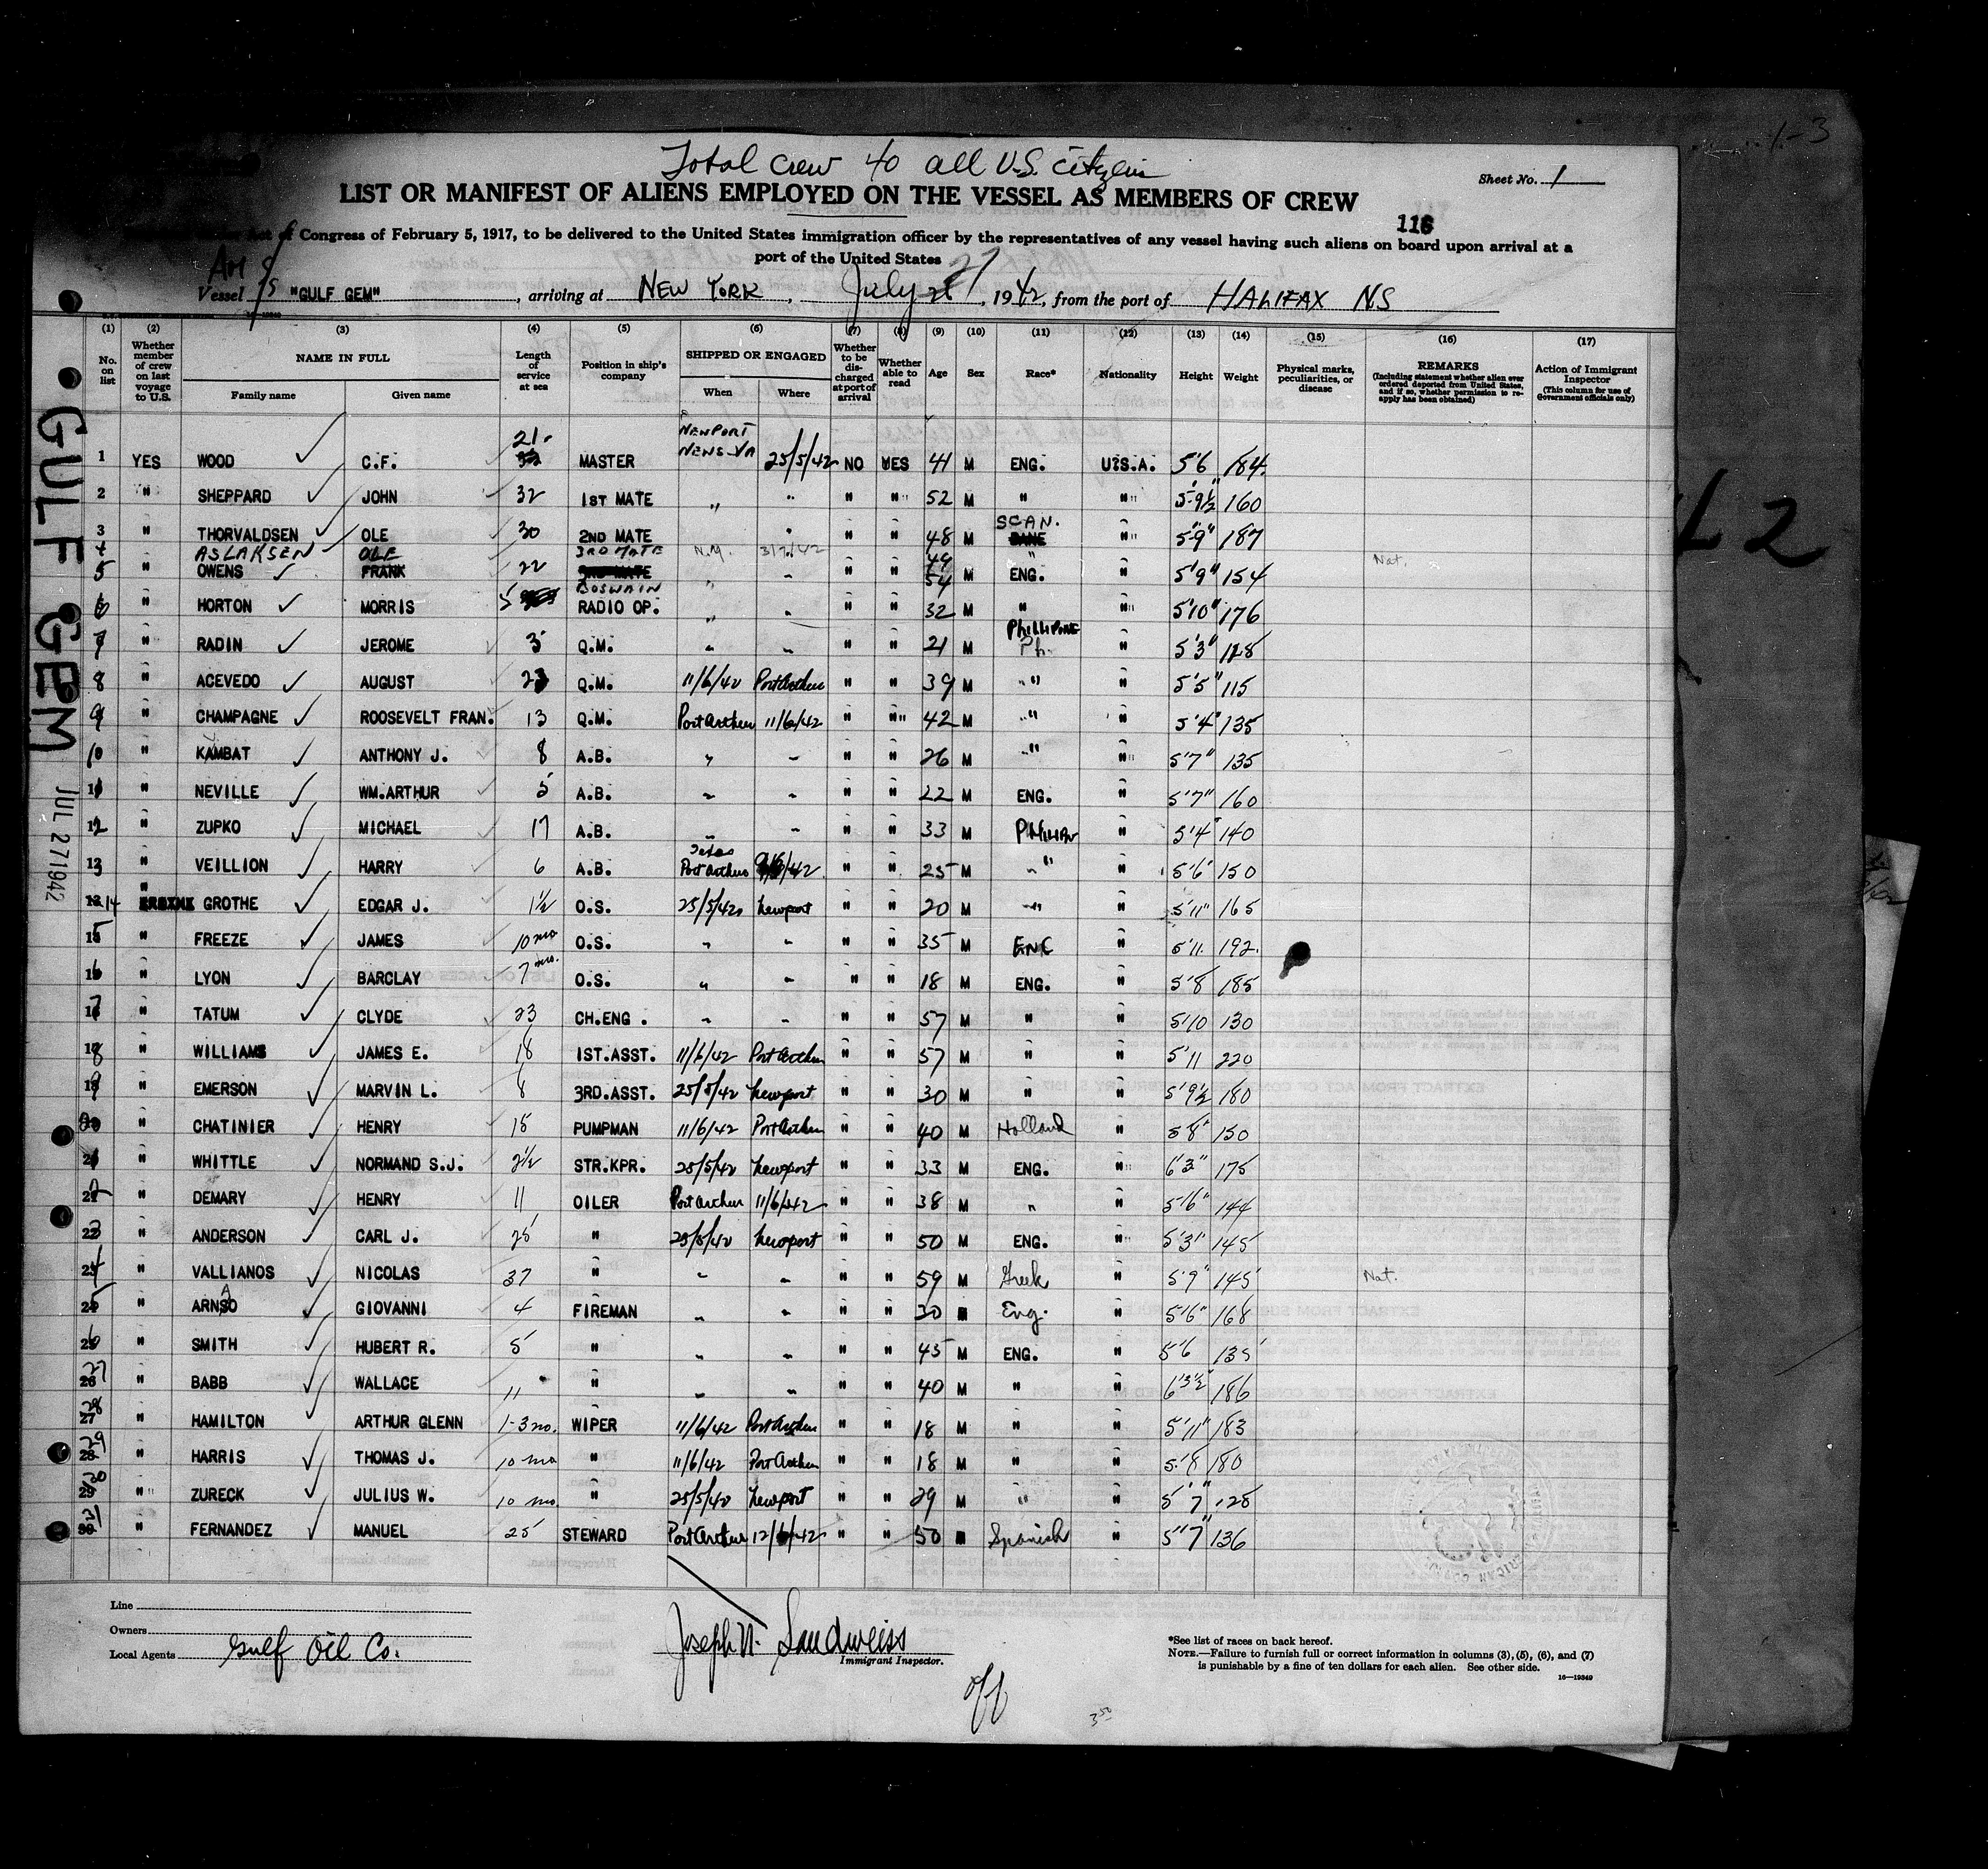 1-3
Total Crew 40 all U.S. citizens
Sheet No. 1
LIST OR MANIFEST OF ALIENS EMPLOYED ON THE VESSEL AS MEMBERS OF CREW
116
Act of Congress of February 5, 1917, to be delivered to the United States immigration officer by the representatives of any vessel having such aliens on board upon arrival at a
port of the United States
Vessel "GULF GEM", arriving at NEW YORK, July 27, 1942, from the port of HALIFAX N.S
(1) (2) (3) (4) (5) (6) (7) (8) (9) (10) (11) (12) (13) (14) (15) (16) (17)
No. on list
Whether member of crew on last voyage to U.S.
NAME IN FULL
Family name Given name
Length of service at sea
Position in ship's company
SHIPPED OR ENGAGED
When Where
Whether to be discharged at port of arrival
Whether able to read
Age Sex Race* Nationality Height Weight
Physical marks, peculiarities, or disease
REMARKS
(Including statement whether alien ever ordered deported from United States, and if so, whether permission to reapply has been obtained)
Action of Immigrant Inspector
(This column for use of Government officials only)
1 YES WOOD C.F. 21 MASTER NEWPORT NEWS VA 25/5/42 NO YES 41 M ENG. U.S.A. 5'6 184
2 " SHEPPARD JOHN 32 1ST MATE " " " " 52 M " " 5-9½ 160
3 " THORVALDSEN OLE 30 2ND MATE " " " 48 M SCAN. " 5'9" 187
4 ASLAKSEN OLE 3RD MATE N.N. 49 " Nat.
5 " OWENS FRANK 22 BOSWAIN " " " " 54 M ENG. " 5'9" 154
6 " HORTON MORRIS 5 RADIO OP. " " " " 32 M " " 5'10" 176
7 " RADIN JEROME 3 Q.M. " " " " 21 M PHILLIPINE Ph. " 5'3" 128
8 " ACEVEDO AUGUST 23 Q.M. 11/6/42 Port Arthur " " 39 M " " 5'5" 115
9 " CHAMPAGNE ROOSEVELT FRAN. 13 Q.M. Port Arthur 11/6/42 " " 42 M " " 5'4" 135
10 " KAMBAT ANTHONY J. 8 A.B. " " " " 26 M " " 5'7" 135
11 " NEVILLE WM.ARTHUR 5 A.B. " " " " 22 M ENG. " 5'7" 160
12 " ZUPKO MICHAEL 17 A.B. " " " " 33 M " 5'4" 140
13 " VEILLION HARRY 6 A.B. Texas Port Arthur " " 25 M " " 5'6" 150
14 " GROTHE EDGAR J. 1½ O.S. 25/5/42 Newport " " 20 M " " 5'11" 165
15 " FREEZE JAMES 10 mo O.S. " " " " 35 M ENG " 5'11 192
16 " LYON BARCLAY 7 mo. O.S. " " " " 18 M ENG. " 5'8 185
17 " TATUM CLYDE 23 CH.ENG. " " " " 57 M " " 5'10 130
18 " WILLIAMS JAMES E. 18 1ST.ASST. 11/6/42 Port Arthur " " 57 M " " 5'11 220
19 " EMERSON MARVIN L. 8 3RD.ASST. 25/5/42 Newport " " 30 M " " 5'9½ 180
20 " CHATINIER HENRY 15 PUMPMAN 11/6/42 Port Arthur " " 40 M Holland " 5'8" 150
21 " WHITTLE NORMAND S.J. 2½ STR.KPR. 25/5/42 Newport " " 33 M ENG. " 6'3" 175
22 " DEMARY HENRY 11 OILER Port Arthur 11/6/42 " " 38 M " " 5'6" 144
23 " ANDERSON CARL J. 25 " 25/5/42 Newport " " 50 M ENG. " 5'3" 145
24 " VALLIANOS NICOLAS 37 " " " " " 59 M Greek " 5'9" 145 Nat.
25 " ARNAO GIOVANNI 4 FIREMAN " " " " 30 M Eng. " 5'6" 168
26 " SMITH HUBERT R. 5 " " " " " 45 M ENG. " 5'6 135
27 " BABB WALLACE 11 " " " " " 40 M " " 6'3½" 186
28 " HAMILTON ARTHUR GLENN 1-3 mo. WIPER 11/6/42 Port Arthur " " 18 M " " 5'11" 183
29 " HARRIS THOMAS J. 10 mo " 11/6/42 Port Arthur " " 18 M " " 5'8 180
30 " ZURECK JULIUS W. 10 mo. " 25/5/42 Newport " " 29 M " " 5'7" 125
31 " FERNANDEZ MANUEL 25 STEWARD Port Arthur 12/6/42 " " 50 M Spanish " 5'7" 136
GULF GEM
JUL 27 1942
42
Line
Owners
Local Agents Gulf Oil Co.
Joseph N. Sandweiss
Immigrant Inspector.
off
3 50
*See list of races on back hereof.
NOTE.—Failure to furnish full or correct information in columns (3), (5), (6), and (7)
is punishable by a fine of ten dollars for each alien. See other side.
16—19349